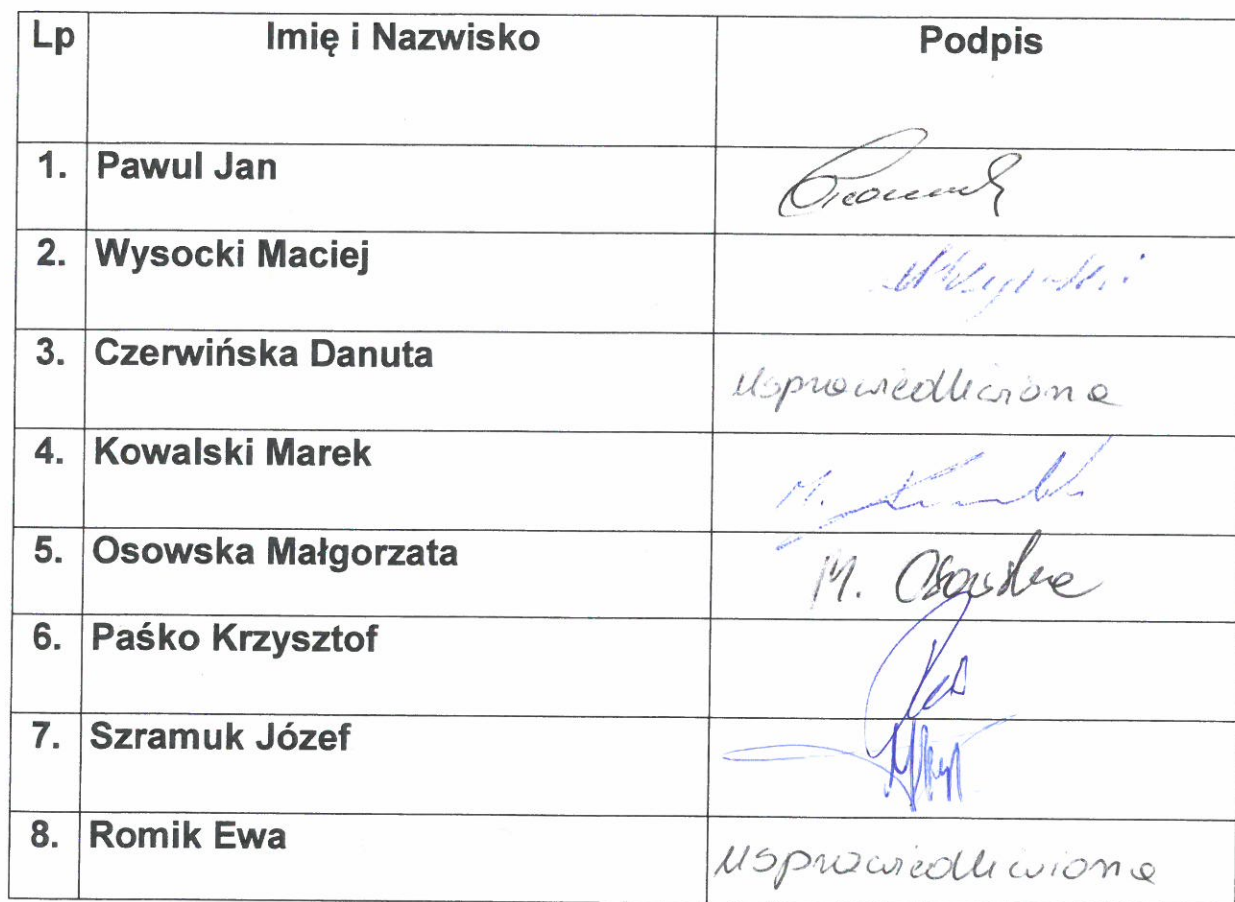 Lp Imię i Nazwisko Podpis
1. Pawul Jan
2. Wysocki Maciej
3. Czerwińska Danuta usprawiedliwiona
4. Kowalski Marek M.
5. Osowska Małgorzata M. Osowska
6. Paśko Krzysztof
7. Szramuk Józef
8. Romik Ewa usprawiedliwiona